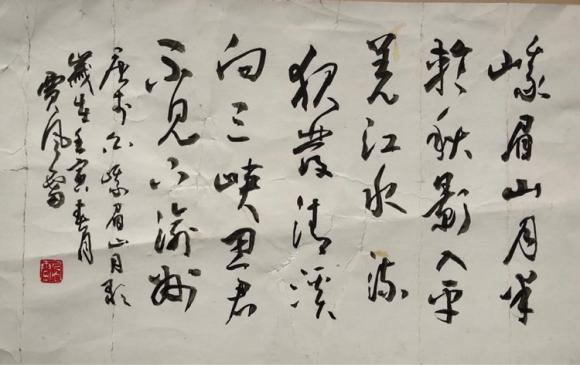 峨眉山月半
輪秋影入平
羌江水流
夜發清溪
向三峽思君
不見下渝州
唐李白峨眉山月歌
歲在壬寅春月
賈風